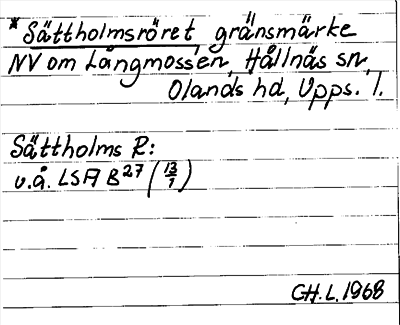 * Sättholmsröret gränsmärke
NV om Långmossen, Hållnäs sn,
Olands hd, Upps. l.
Sättholms R:
u.å. LSA B27 (13/1)
GH.L. 1968